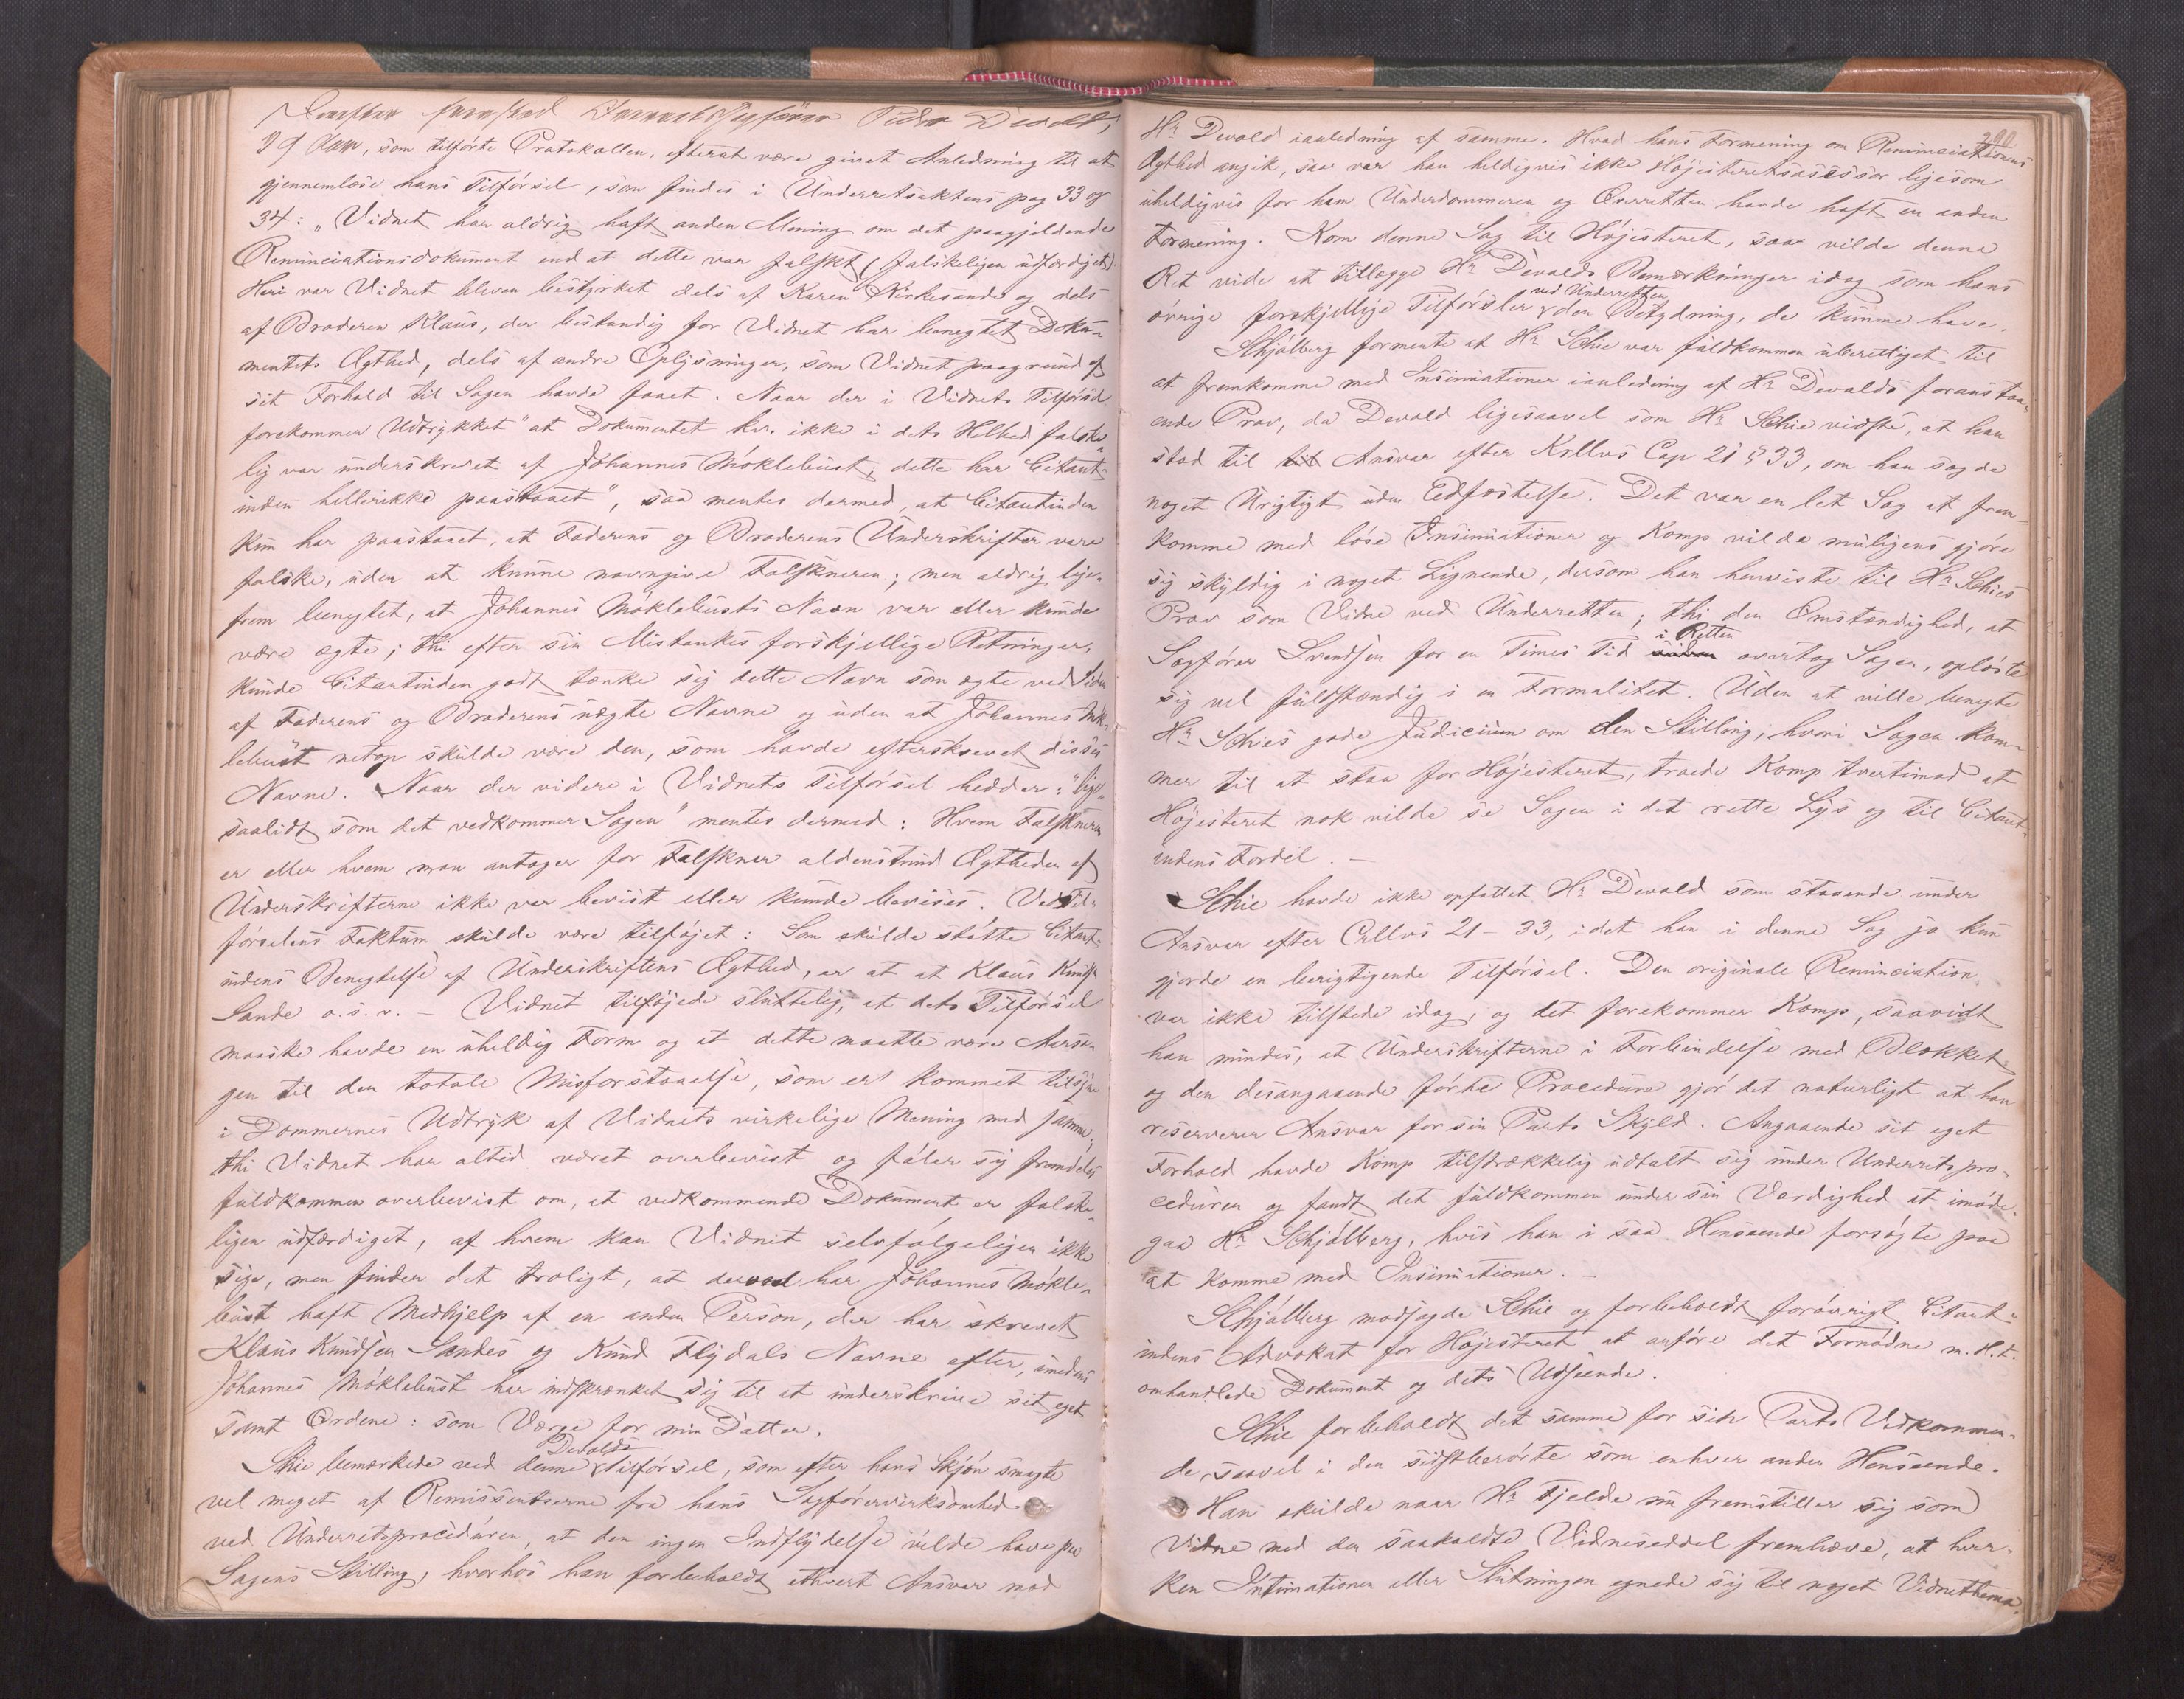 Derefter fremstod Overretssagfører Peder Devold,
39 Aar, som tilførte Protokollen, efterat være givet Anledning til at
gjennemlæse hans Tilførsel, som findes i Underretsaktens pag 33 og
34: "Vidnet har aldrig haft anden Mening om det paagjeldende
Renunciationsdokument end at dette var falskt (falskeligen udfærdiget).
Heri var Vidnet bleven bestyrket dels af Karen Kirkesande og dels
af Broderen Klaus, der bestandig for Vidnet har benegtet Doku-
mentets Ægthed, dels af andre Oplysninger, som Vidnet paagrund af
sit Forhold til Sagen havde faaet. Naar der i Vidnets Tilførsel
forekommer Udtrykket "at Dokumentet kv. ikke i dets Helhed falske-
lig var underskrevet af Johannes Møklebust; dette har Citant-
inden hellerikke paastaaet", saa mentes dermed, at Citantinden
kun har paastaaet, at Faderens og Broderens Underskrifter vare
falske, uden at kunne navngive Falskneren; men aldrig lige-
frem benegtet, at Johannes Møklebusts Navn var eller kunde
være ægte; thi efter sin Mistankes forskjellige Retninger,
kunde Citantinden godt tænke sig dette Navn som ægte ved Siden
af Faderens og Broderens uægte Navne og uden at Johannes Møk-
lebust netop skulde være den, som havde efterskrevet disses
Navne. Naar der videre i Vidnets Tilførsel hedder: "lige-
saalidt som det vedkommer Sagen" mentes dermed: Hvem Falskneren
er eller hvem man antager for Falskner aldenstund Ægtheden af
Underskrifterne ikke var bevist eller kunde bevises. Ved Til-
førselens Faktum skulde være tilføjet: Som skulde støtte Citant-
indens Benegtelse af Underskriftens Ægthed, er at at Klaus Knudsen
Sande o.s.v. — Vidnet tilføjede sluttelig, at dets Tilførsel
maaske havde en uheldig Form og at dette maatte være Aarsa-
gen til den totale Misforstaaelse, som er kommet tilsyne
i Dommernes Udtryk af Vidnets virkelige Mening med samme;
thi Vidnet har altid været overbevist og føler sig fremdeles
fuldkommen overbevist om, at vedkommende Dokument er falske-
ligen udfærdiget, af hvem kan Vidnet selvfølgeligen ikke
sige, men finder det troligt, at derved har Johannes Møkle-
bust haft Medhjelp af en anden Person, der har skrevet
Klaus Knudsen Sandes og Knud Flydals Navne efter, imedens
Johannes Møklebust har indskrænket sig til at underskrive sit eget
samt Ordene: som Værge for min Datter.
Devolds
Schie bemærkede ved denne Tilførsel, som efter hans Skjøn smagte
vel meget af Remissentserne fra hans Sagførervirksomhed
ved Underretsproceduren, at den ingen Indflydelse vilde have paa
Sagens Stilling, hvorhos han forbeholdt ethvert Ansvar mod
290
Hr Devold ianledning af samme. Hvad hans Formening om Renunciationens
Ægthed angik, saa var han heldigvis ikke Højesteretsassessor ligesom
uheldigvis for ham Underdommeren og Overretten havde haft en anden
Formening. Kom denne Sag til Højesteret, saa vilde denne
Ret vide at tillægge Hr Devolds Bemærkninger idag som hans
ved Underretten
øvrige forskjellige Tilførsler den Betydning, de kunne have.
Schjølberg formente at Hr Schie var fuldkommen uberettiget til
at fremkomme med Insinuationer ianledning af Hr Devolds foranstaa-
ende Prov, da Devold ligesaavel som Hr Schie vidste, at han
stod til Ansvar efter KrlLvs Cap 21 § 33, om han sagde
noget Urigtigt uden Edfæstelse. Det var en let Sag at frem-
komme med løse Insinuationer og Komp vilde muligens gjøre
sig skyldig i noget Lignende, dersom han henviste til Hr Schies
Prov som Vidne ved Underretten; thi den Omstændighed, at
i Retten
Sagfører Svendsen for en Times Tid overtog Sagen, opløste
sig vel fuldstændig i en Formalitet. Uden at ville benegte
Hr Schies gode Judicium om den Stilling, hvori Sagen kom-
mer til at staa for Højesteret, troede Komp tvertimod at
Højesteret nok vilde se Sagen i det rette Lys og til Citant-
indens Fordel. —
Schie havde ikke opfattet Hr Devold som staaende under
Ansvar efter CrlLvs 21-33, idet han i denne Sag jo kun
gjorde en berigtigende Tilførsel. Den originale Renunciation
var ikke tilstede idag, og det forekommer Komp, saavidt
han mindes, at Underskrifterne i Forbindelse med Blækket
og den desangaaende førte Procedure gjør det naturligt at han
reserverer Ansvar for sin Parts Skyld. Angaaende sit eget
Forhold havde Komp tilstrækkelig udtalt sig under Underretspro-
ceduren og fandt det fuldkommen under sin Værdighed at imøde-
gaa Hr Schjølberg, hvis han i saa Henseende forsøgte paa
at komme med Insinuationer. —
Schjølberg modsagde Schie og forbeholdt forøvrigt Citant-
indens Advokat for Højesteret at anføre det Fornødne m.H.t.
omhandlede Dokument og dets Udseende.
Schie forbeholdt det samme for sin Parts Vedkommen-
de, saavel i den sidstberørte som enhver anden Henseende.
Han skulde naar Hr Fjelde nu fremstiller sig som
Vidne med den saakaldte Vidneseddel fremhæve, at hver-
ken Intimationen eller Slutningen egnede sig til noget Vidnethema.